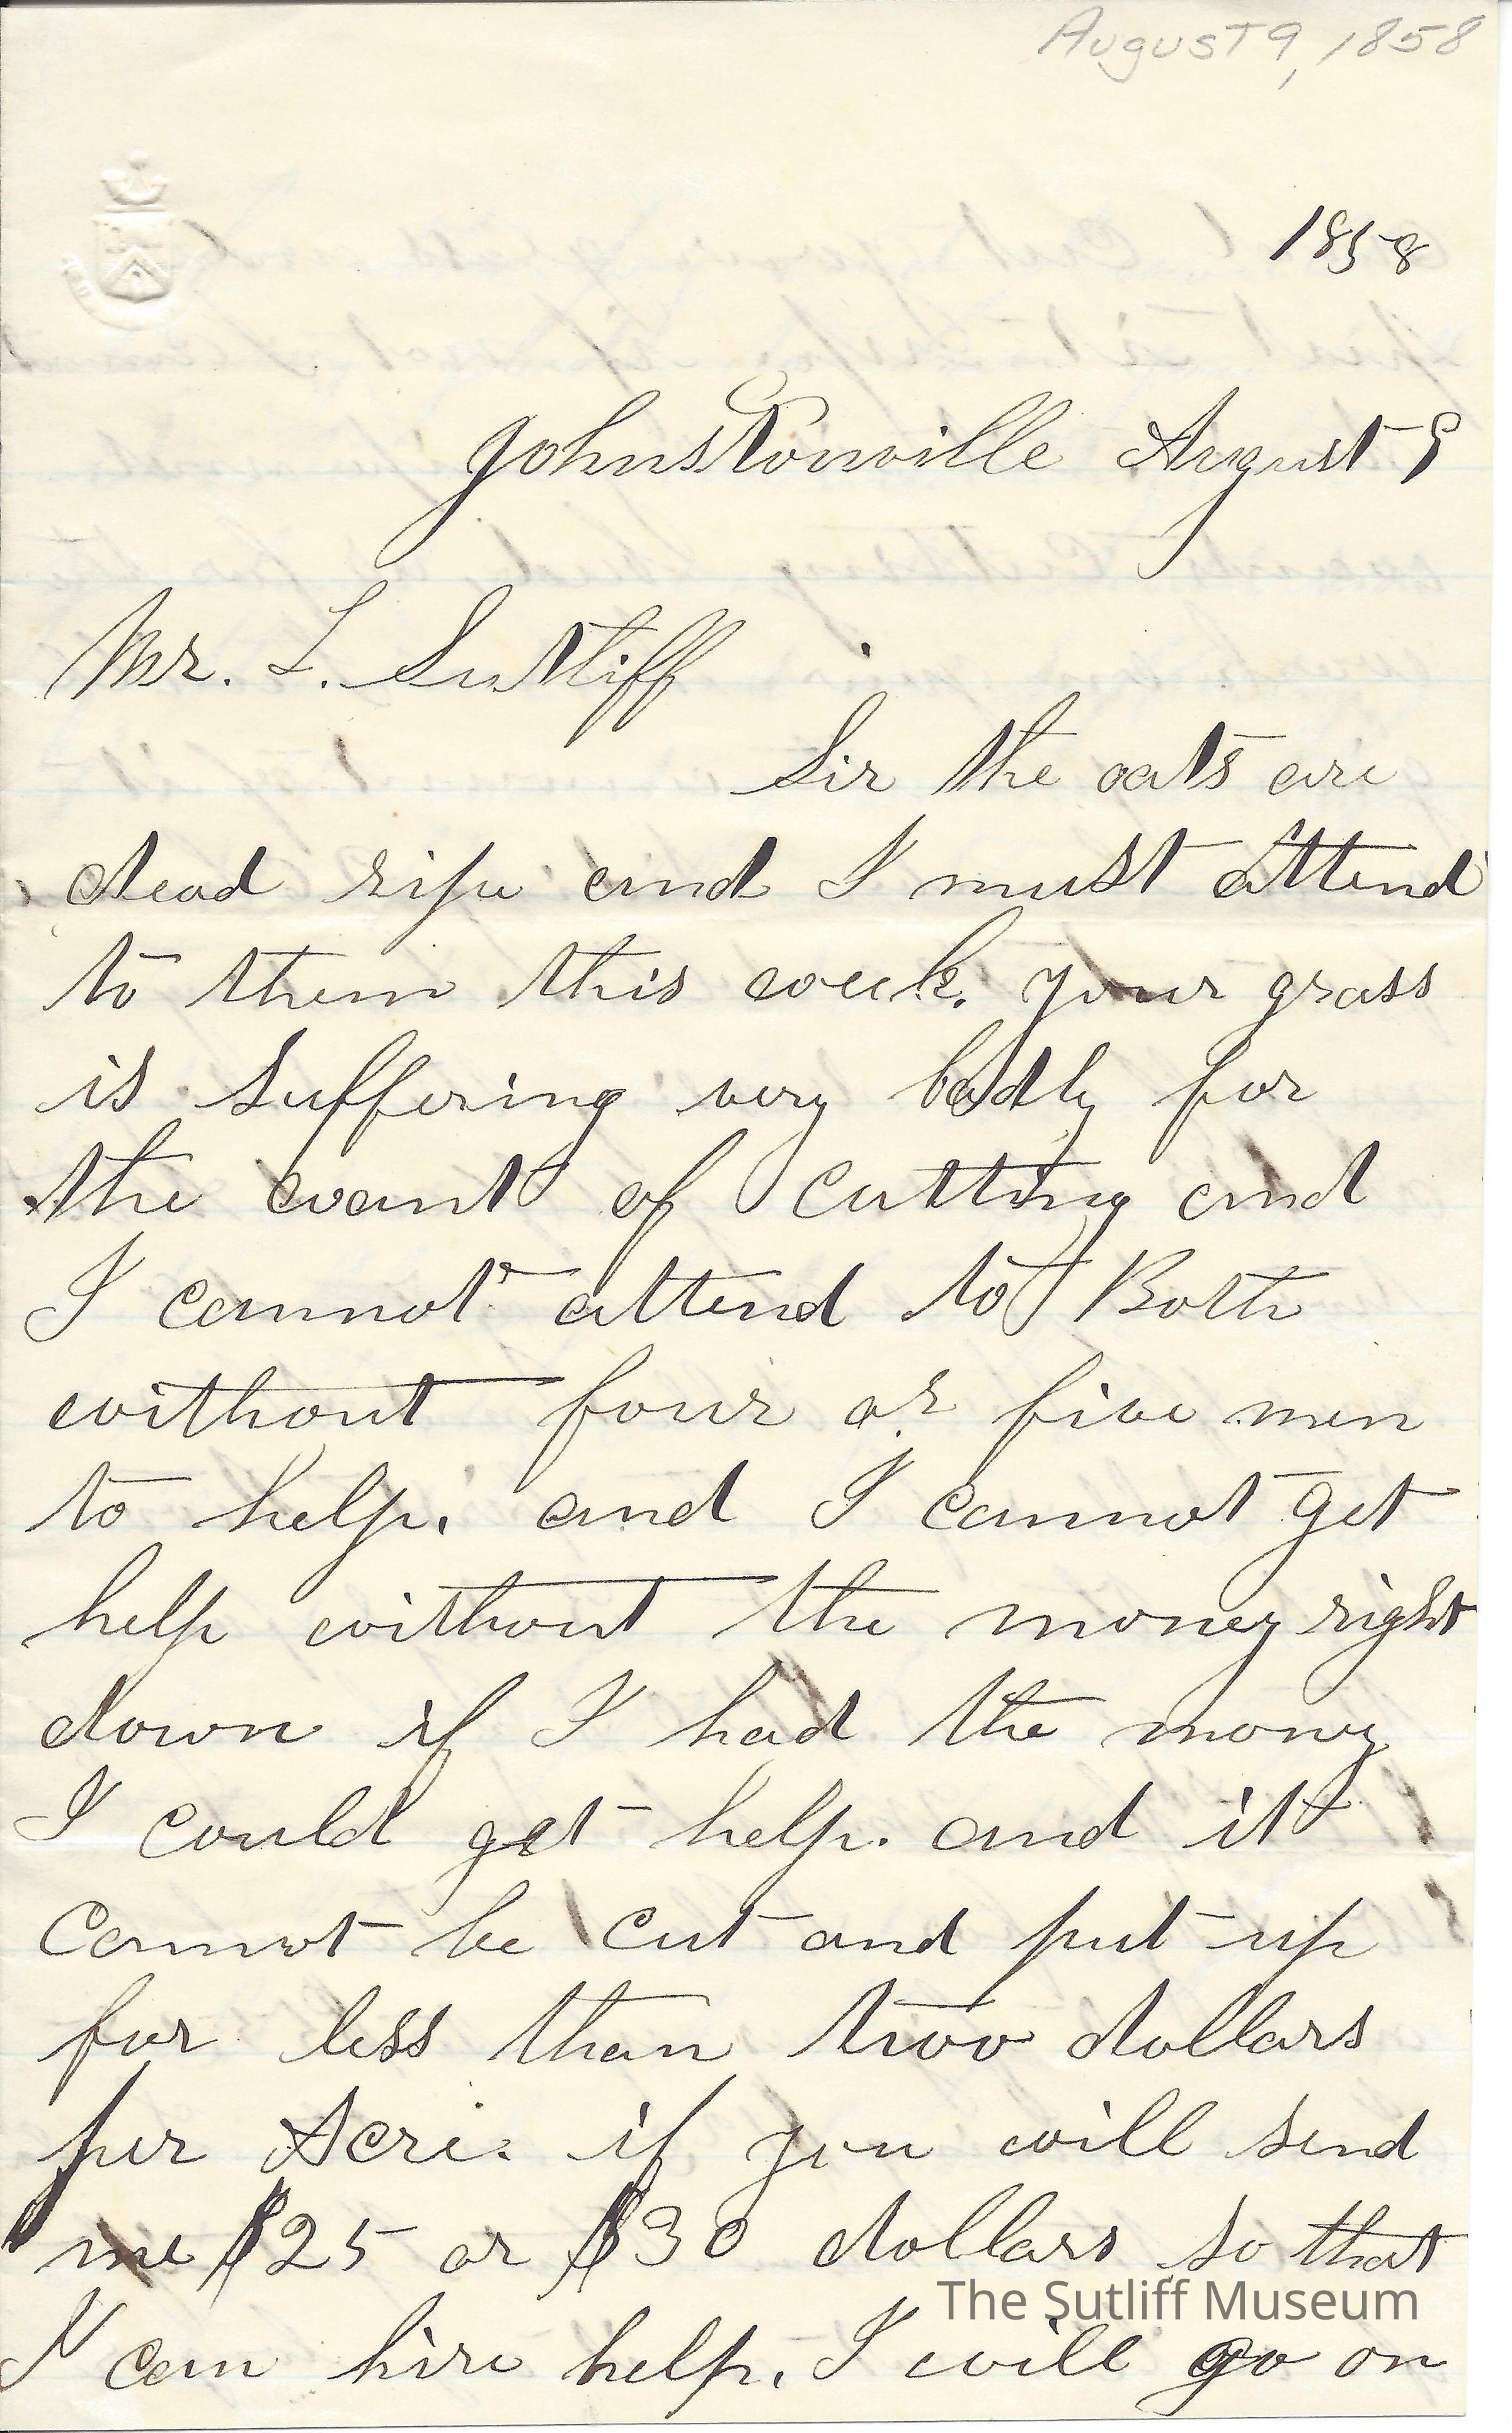 August 9, 1858
1858
Johnstonville August 9
Mr. L. Sutliff
Sir the oats are
dead ripe and I must attend
to them this week. your grass
is suffering very badly for
the want of cutting and
I cannot attend to Both
without four or five men
to help. and I cannot get
help without the money right
down if I had the mony
I could get help. and it
cannot be cut and put up
for less than two dollars
per Acre. if you will send
me $25 or $30 dollars so that
The Sutliff Museum
I can hire help. I will go on